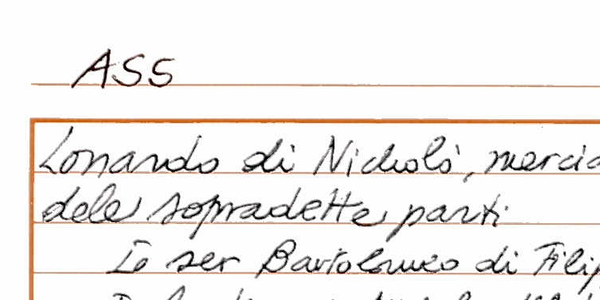 ASS
Lonardo di Nicholò, mercia
dele sopradette parti
Io ser Bartolomeo di Filip